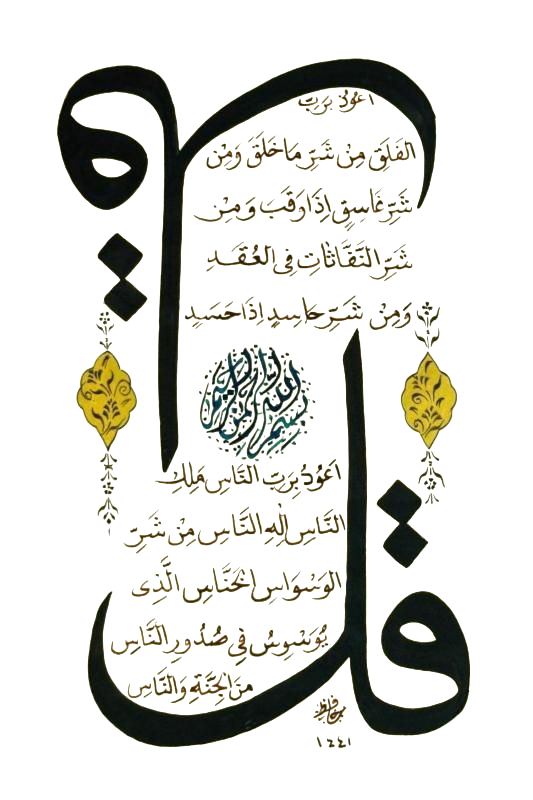 قل
اَعُوذُ بِرَبِّ
الفَلَقِ مِنْ شَرِّ مَا خَلَقَ وَمِنْ
شَرِّ غَاسِقٍ اِذَا وَقَبَ وَمِنْ
شَرِّ النَّفَّاثَاتِ فِي العُقَدِ
وَمِنْ شَرِّ حَاسِدٍ اِذَا حَسَدَ
بسم الله الرحمن الرحيم
قل
اَعُوذُ بِرَبِّ النَّاسِ مَلِكِ
النَّاسِ اِلٰهِ النَّاسِ مِنْ شَرِّ
الوَسْوَاسِ الخَنَّاسِ الَّذِى
يُوَسْوِسُ فِي صُدُورِ النَّاسِ
مِنَ الجِنَّةِ وَالنَّاسِ
١٤٤١